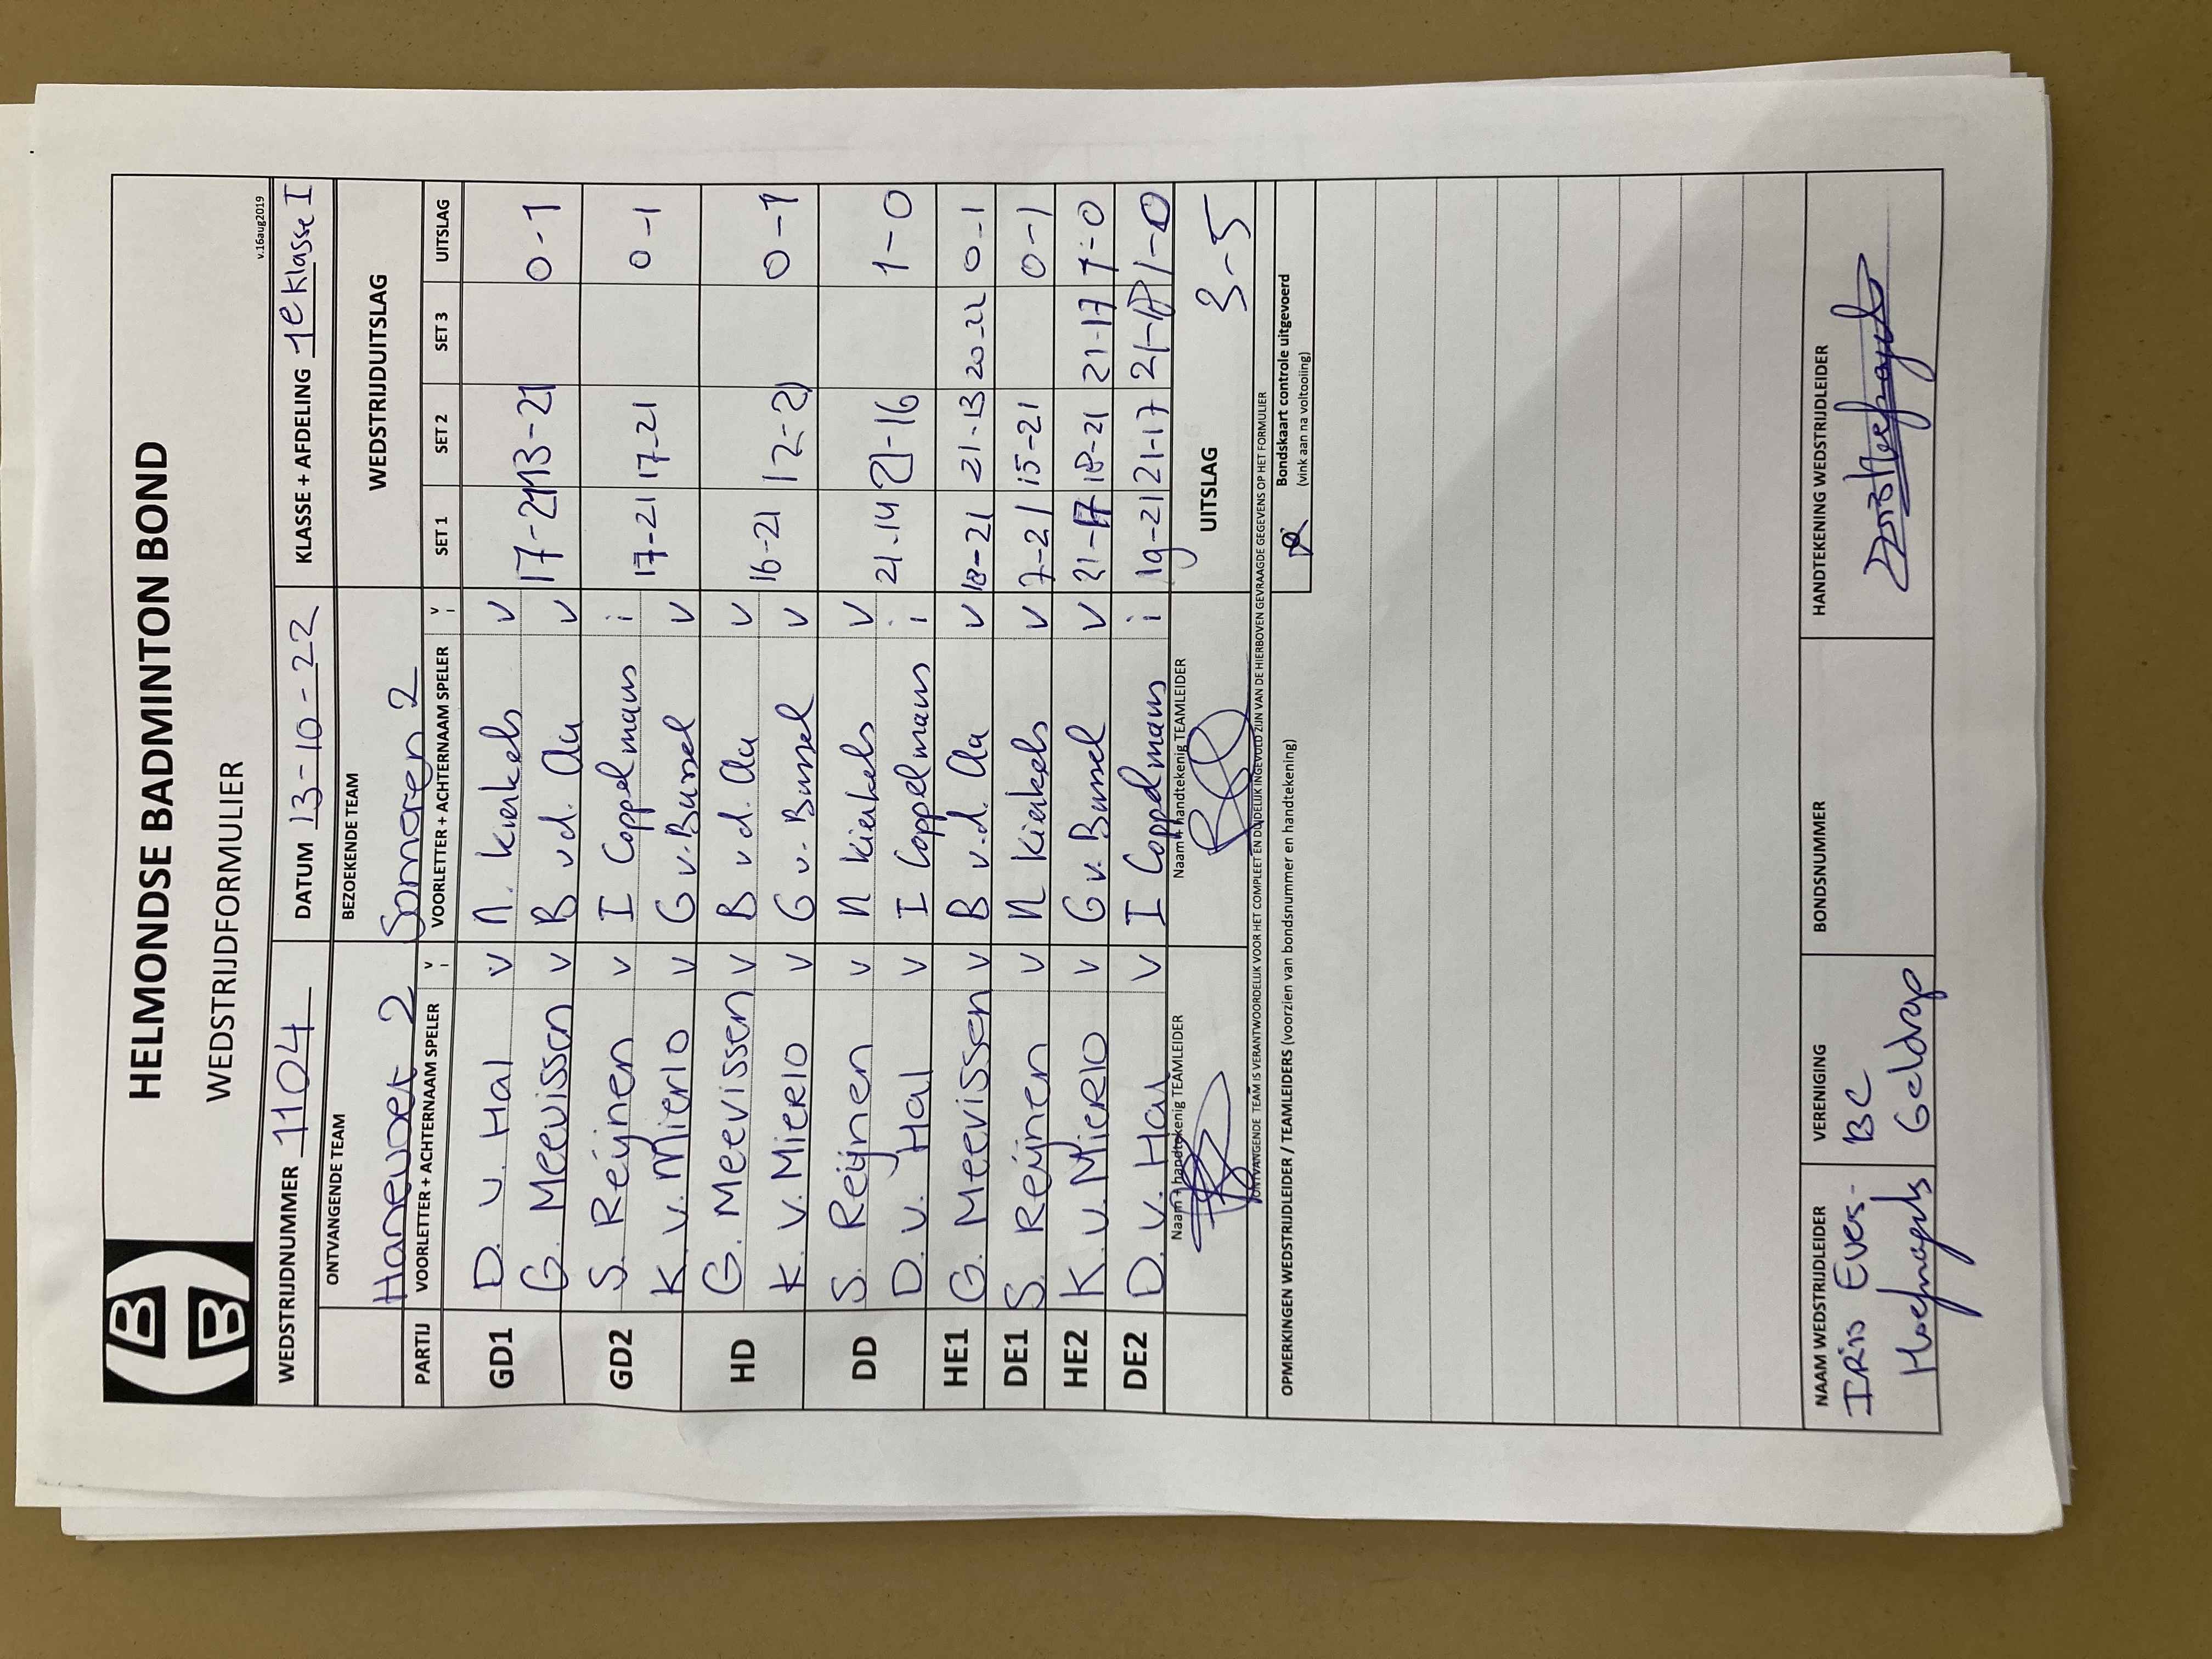 HELMONDSE BADMINTON BOND
WEDSTRIJDFORMULIER
v.16aug2019
WEDSTRIJDNUMMER 1104 DATUM 13-10-22 KLASSE + AFDELING 1e klasse I
ONTVANGENDE TEAM BEZOEKENDE TEAM WEDSTRIJDUITSLAG
Hanevoet 2 Someren 2
PARTIJ VOORLETTER + ACHTERNAAM SPELER V I VOORLETTER + ACHTERNAAM SPELER V I SET 1 SET 2 SET 3 UITSLAG
D. v. Hal v N. Kierkels v
GD1 17-21 13-21 0-1
G. Meevissen v B v.d. Aa v
S. Reijnen v I Coppelmans i
GD2 17-21 17-21 0-1
K. v. Mierlo v G v. Bussel v
G. Meevissen v B v.d. Aa v
HD 16-21 12-21 0-1
K. v. Mierlo v G v. Bussel v
S. Reijnen v N Kierkels v
DD 21-14 21-16 1-0
D. v. Hal v I Coppelmans i
HE1 G. Meevissen v B v.d. Aa v 18-21 21-13 20-22 0-1
DE1 S. Reijnen v N Kierkels v 7-21 15-21 0-1
HE2 K. v. Mierlo v G v. Bussel v 21-17 18-21 21-17 1-0
DE2 D. v. Hal v I Coppelmans i 19-21 21-17 21-17 1-0
Naam + handtekenig TEAMLEIDER Naam + handtekenig TEAMLEIDER UITSLAG 3-5
ONTVANGENDE TEAM IS VERANTWOORDELIJK VOOR HET COMPLEET EN DUIDELIJK INGEVULD ZIJN VAN DE HIERBOVEN GEVRAAGDE GEGEVENS OP HET FORMULIER
OPMERKINGEN WEDSTRIJDLEIDER / TEAMLEIDERS (voorzien van bondsnummer en handtekening)
Bondskaart controle uitgevoerd
(vink aan na voltooiing)
NAAM WEDSTRIJDLEIDER VERENIGING BONDSNUMMER HANDTEKENING WEDSTRIJDLEIDER
Iris Evers- BC
Hoefnagels Geldrop